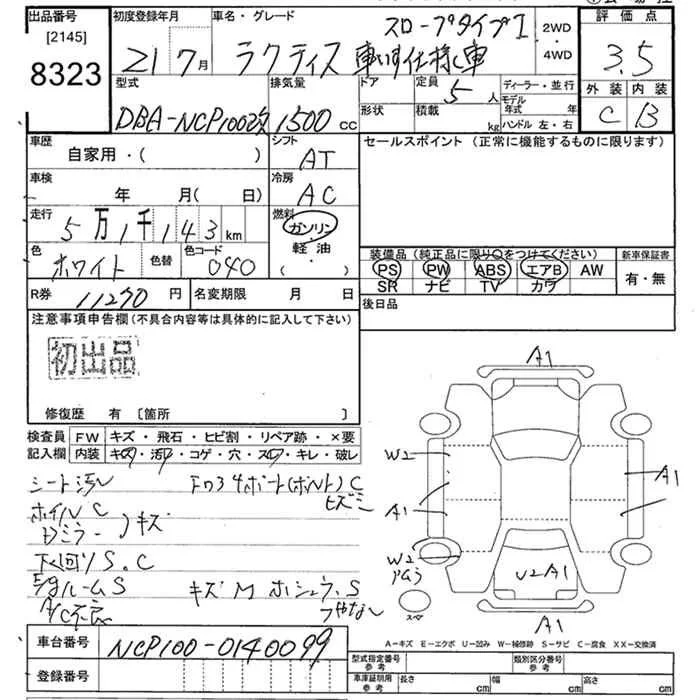 出品番号 [2145] 8323
初度登録年月 21 7月
車名・グレード ラクティス スロープタイプI 車いす仕様車
2WD・4WD
評価点 3.5
外装 C 内装 B
型式 DBA-NCP100改
排気量 1500 cc
ドア
形状
定員 5人
積載 kg
ディーラー・並行
モデル年式 年
ハンドル 左・右
車歴 自家用・( )
シフト AT
セールスポイント (正常に機能するものに限ります)
車検 年 月( 日)
冷房 AC
走行 5万1千143km
燃料 ガソリン・軽油・( )
色 ホワイト 色替 色コード 040
装備品 (純正品に限り○をつけてください) 新車保証書
PS PW ABS エアB AW 有・無
SR ナビ TV カワ
R券 11270円 名変期限 月 日
後日品
注意事項申告欄 (不具合内容等は具体的に記入して下さい)
初出品
修復歴 有 [箇所 ]
検査員 FW キズ・飛石・ヒビ割・リペア跡・×要
記入欄 内装 キズ・汚れ・コゲ・穴・スレ・キレ・破レ
シート汚レ
ホイルC
ドミラー キズ
下回りS.C
A/C不良
キズ M ホシュウ.S
ツヤなし
A1
W2
A1
A1
W2
U2A1
A1
A-キズ E-エクボ U-凹み W-補修跡 S-サビ C-腐食 XX-交換済
車台番号 NCP100-0140099
登録番号
型式指定番号 参考 類別区分番号 参考
車庫証明用 参考 長さ cm 幅 cm 高さ cm